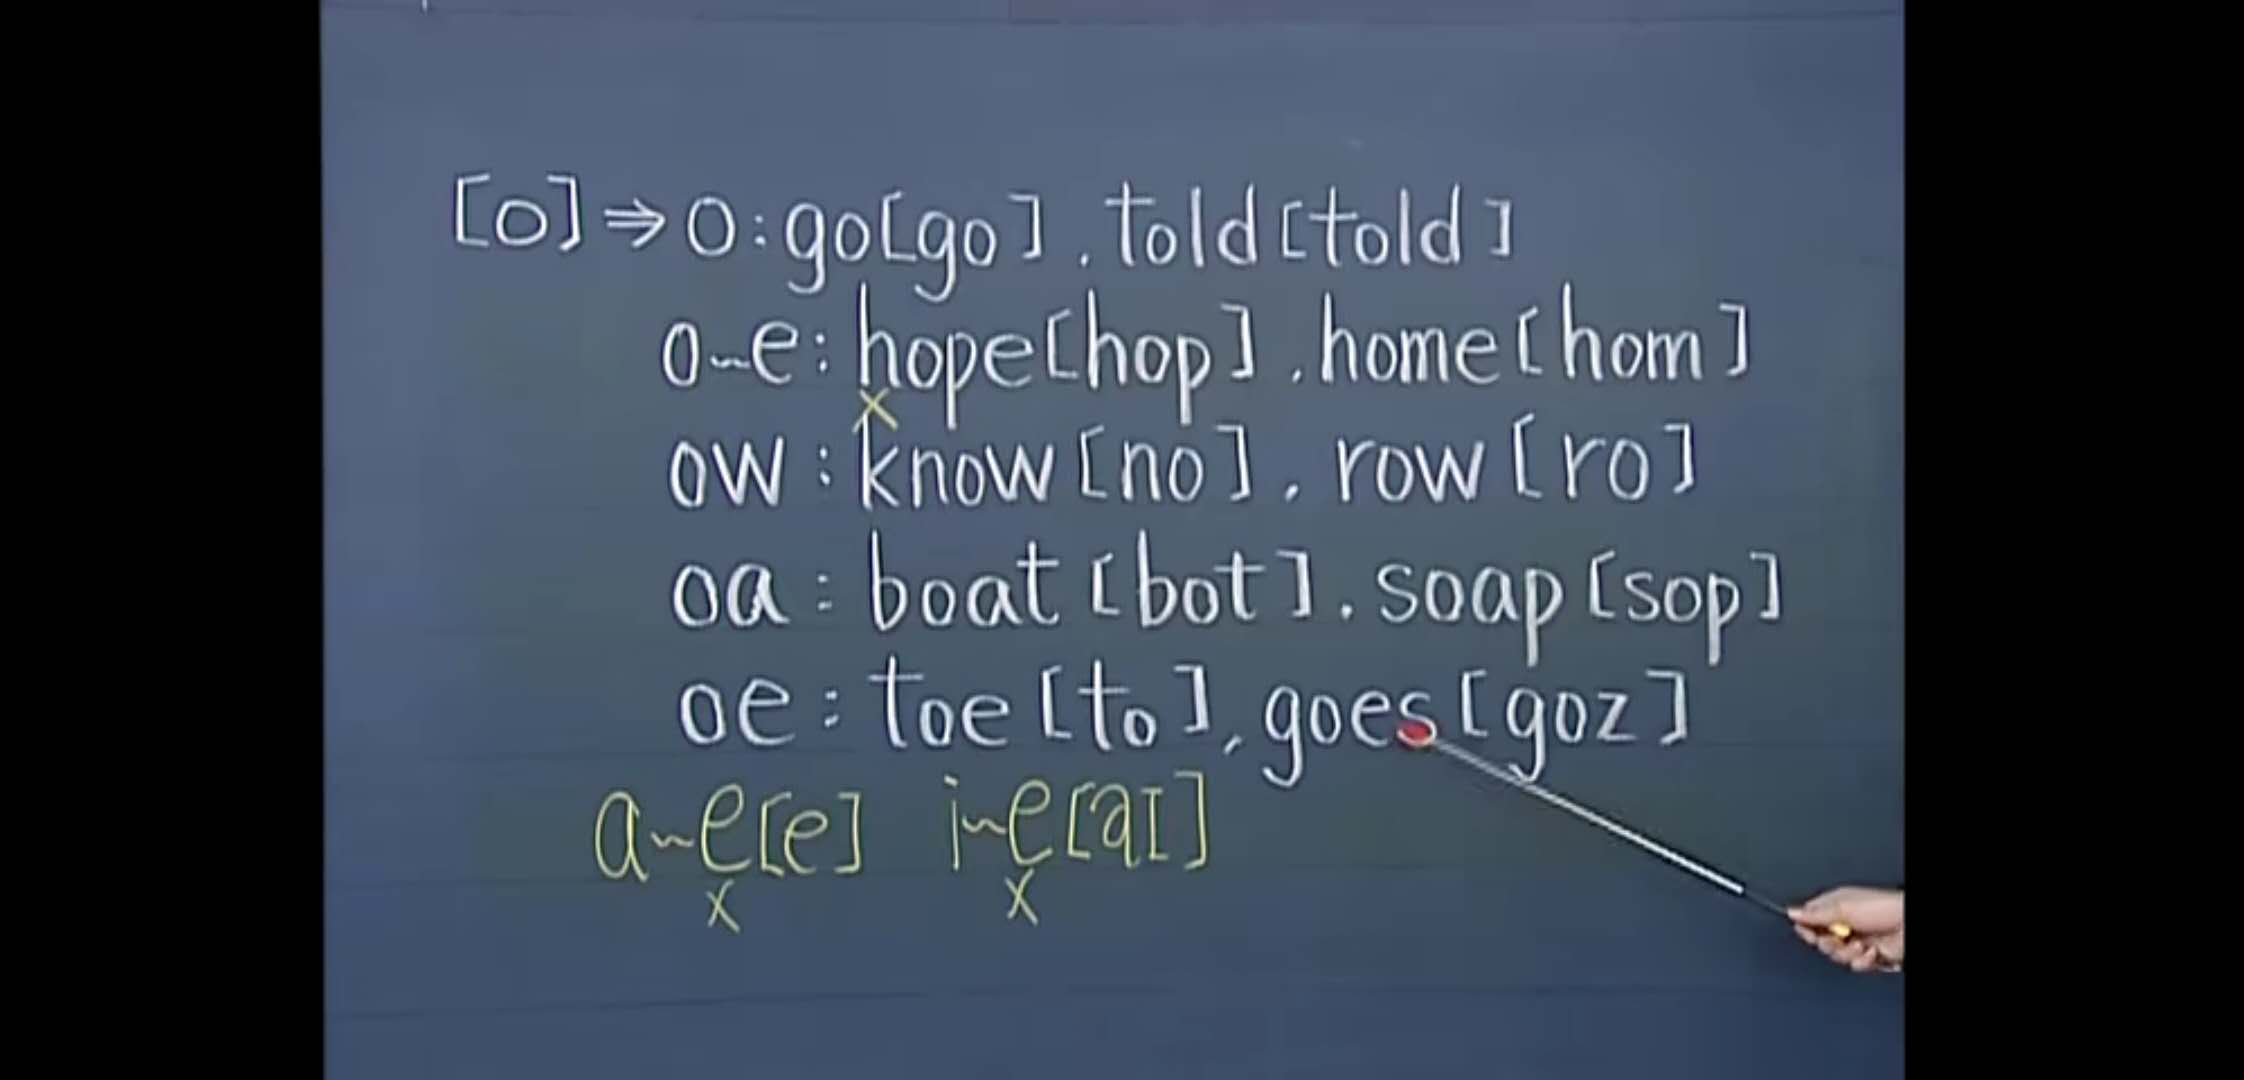 [o]⇒o:go[go].told[told]
o~e:hope[hop].home[hom]
x
ow:know[no].row[ro]
oa:boat[bot].soap[sop]
oe:toe[to],goes[goz]
a~e[e] i~e[aɪ]
x x